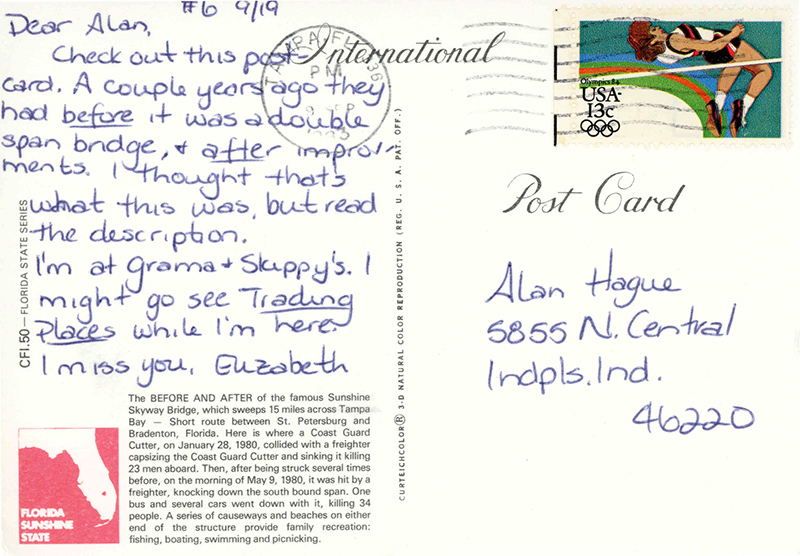 #6 9/19
Dear Alan,
Check out this post-
card. A couple years ago they
had before it was a double
span bridge, & after improve-
ments. I thought that's
what this was, but read
the description.
I'm at Grama & Skippy's. I
might go see Trading
Places while I'm here.
I miss you, Elizabeth
CFI.50 — FLORIDA STATE SERIES
The BEFORE AND AFTER of the famous Sunshine
Skyway Bridge, which sweeps 15 miles across Tampa
Bay — Short route between St. Petersburg and
Bradenton, Florida. Here is where a Coast Guard
Cutter, on January 28, 1980, collided with a freighter
capsizing the Coast Guard Cutter and sinking it killing
23 men aboard. Then, after being struck several times
before, on the morning of May 9, 1980, it was hit by a
freighter, knocking down the south bound span. One
bus and several cars went down with it, killing 34
people. A series of causeways and beaches on either
end of the structure provide family recreation:
fishing, boating, swimming and picnicking.
FLORIDA
SUNSHINE
STATE
CURTEICHCOLOR® 3-D NATURAL COLOR REPRODUCTION (REG. U. S. A. PAT. OFF.)
International
TAMPA, FL 336
PM
SEP
1983
Olympics 84
USA
13c
Post Card
Alan Hague
5855 N. Central
Indpls. Ind.
46220